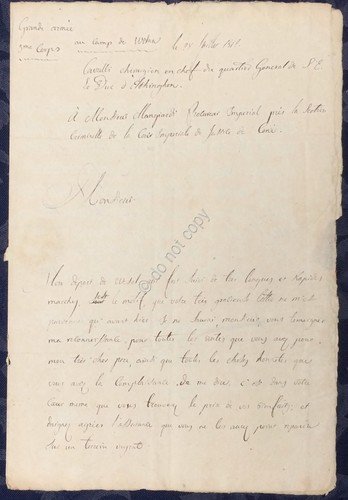 Grande armée
5me Corps
au camp de
le 24 Juillet
Cavalli chirurgien en chef du quartier General de S. E.
le Duc d'Abrantes
À Monsieur Procureur Imperial près la
Criminelle de la Cour Imperiale de Justice de
Monsieur
Mon départ de suivi de très longues et rapides
marches le motif, que votre très gracieuse lettre ne m'est
parvenue qu'avant hier. Je ne saurai, monsieur, vous temoigner
ma reconnaissance pour toutes les visites que vous avez
mon très cher père, ainsi que toutes les choses honnetes que
vous avez la complaisance de me dire, c'est dans votre
Cœur même que vous trouverez le prix de vos bienfaits, et
daignez agréer l'assurance que vous ne les avez point repandu
sur un terrein ingrat.
do not copy